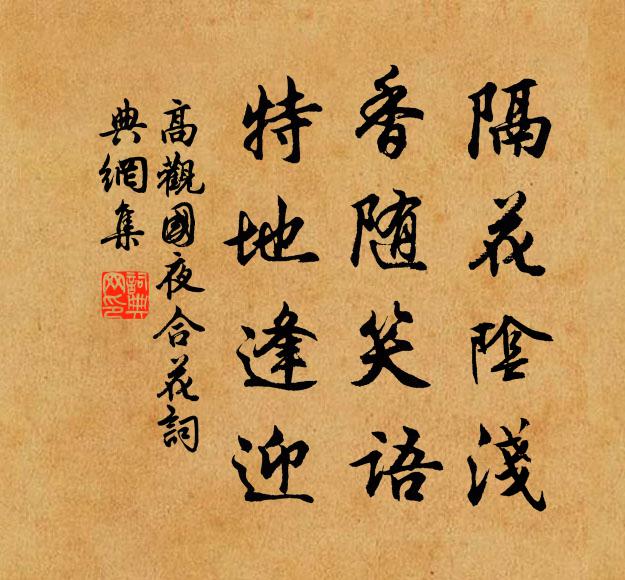 隔花陰淺
香随笑語
特地逢迎
高觀國夜合花詞
典網集
詞典網印